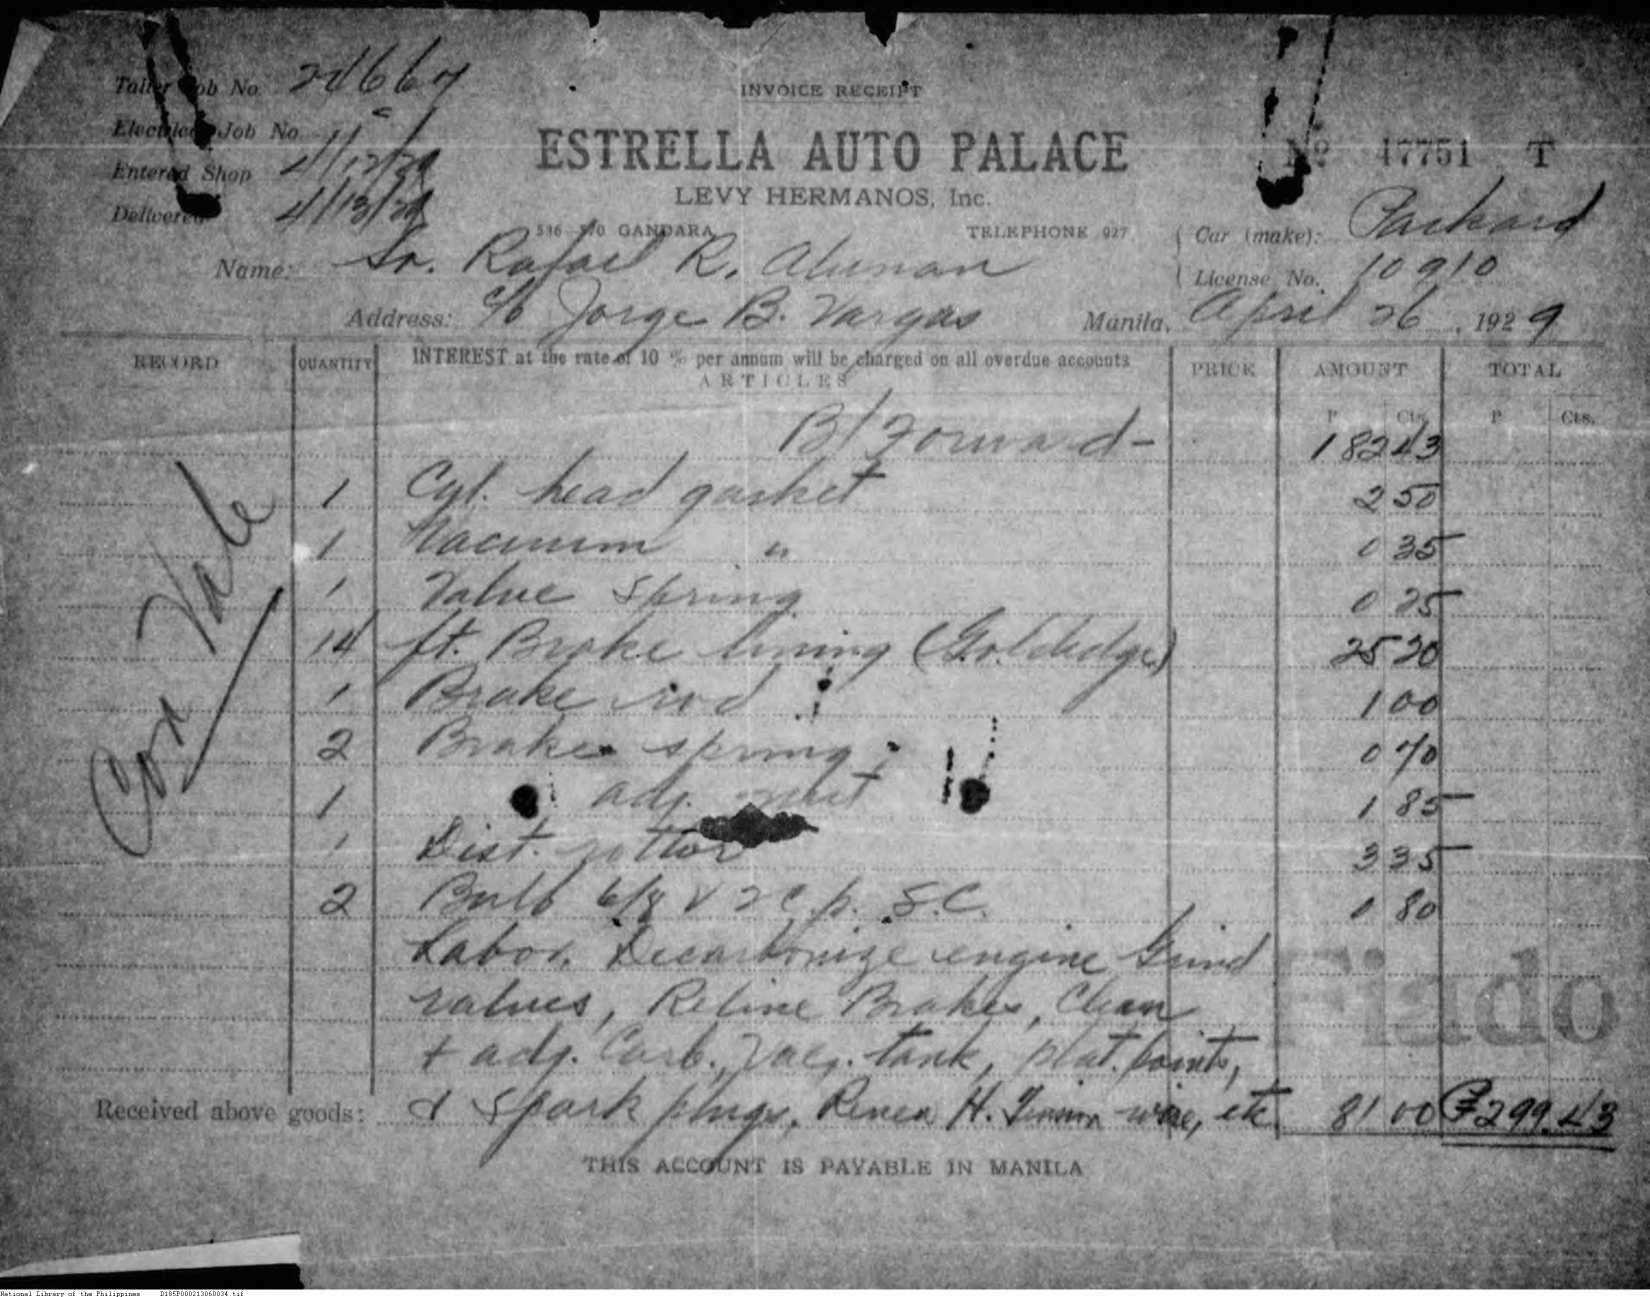 INVOICE RECEIPT
Taller Job No. 24667
Electrical Job No.
Entered Shop 4/12/29
Delivered 4/13/29
ESTRELLA AUTO PALACE
LEVY HERMANOS, Inc.
536 - 570 GANDARA TELEPHONE 927
Nº 47751 T
Car (make): Packard
License No. 10910
Name: Sr. Rafael R. Alunan
Address: c/o Jorge B. Vargas
Manila, April 26, 1929
RECORD QUANTITY INTEREST at the rate of 10 % per annum will be charged on all overdue accounts PRICE AMOUNT TOTAL
ARTICLES
P Cts. P Cts.
B/Forward - 182 43
1 Cyl. head gasket 2 50
1 Vacuum " 0 35
1 Valve spring 0 25
14 ft. Brake lining (Goldedge) 25 20
1 Brake rod 1 00
2 Brake spring 0 70
1 adj. 1 85
1 Dist. rottor 3 35
2 Bulb 6/8 V 2 c.p. S.C. 0 80
Labor. Decarbonize engine Grind
valves, Reline Brakes, Clean
+ adj. Carb., Vac. tank, plat. points,
& spark plugs, Renew H. wire, etc 81 00 ₱299.43
Con Vale
Fiado
Received above goods:
THIS ACCOUNT IS PAYABLE IN MANILA
National Library of the Philippines D185P000213060034.tif